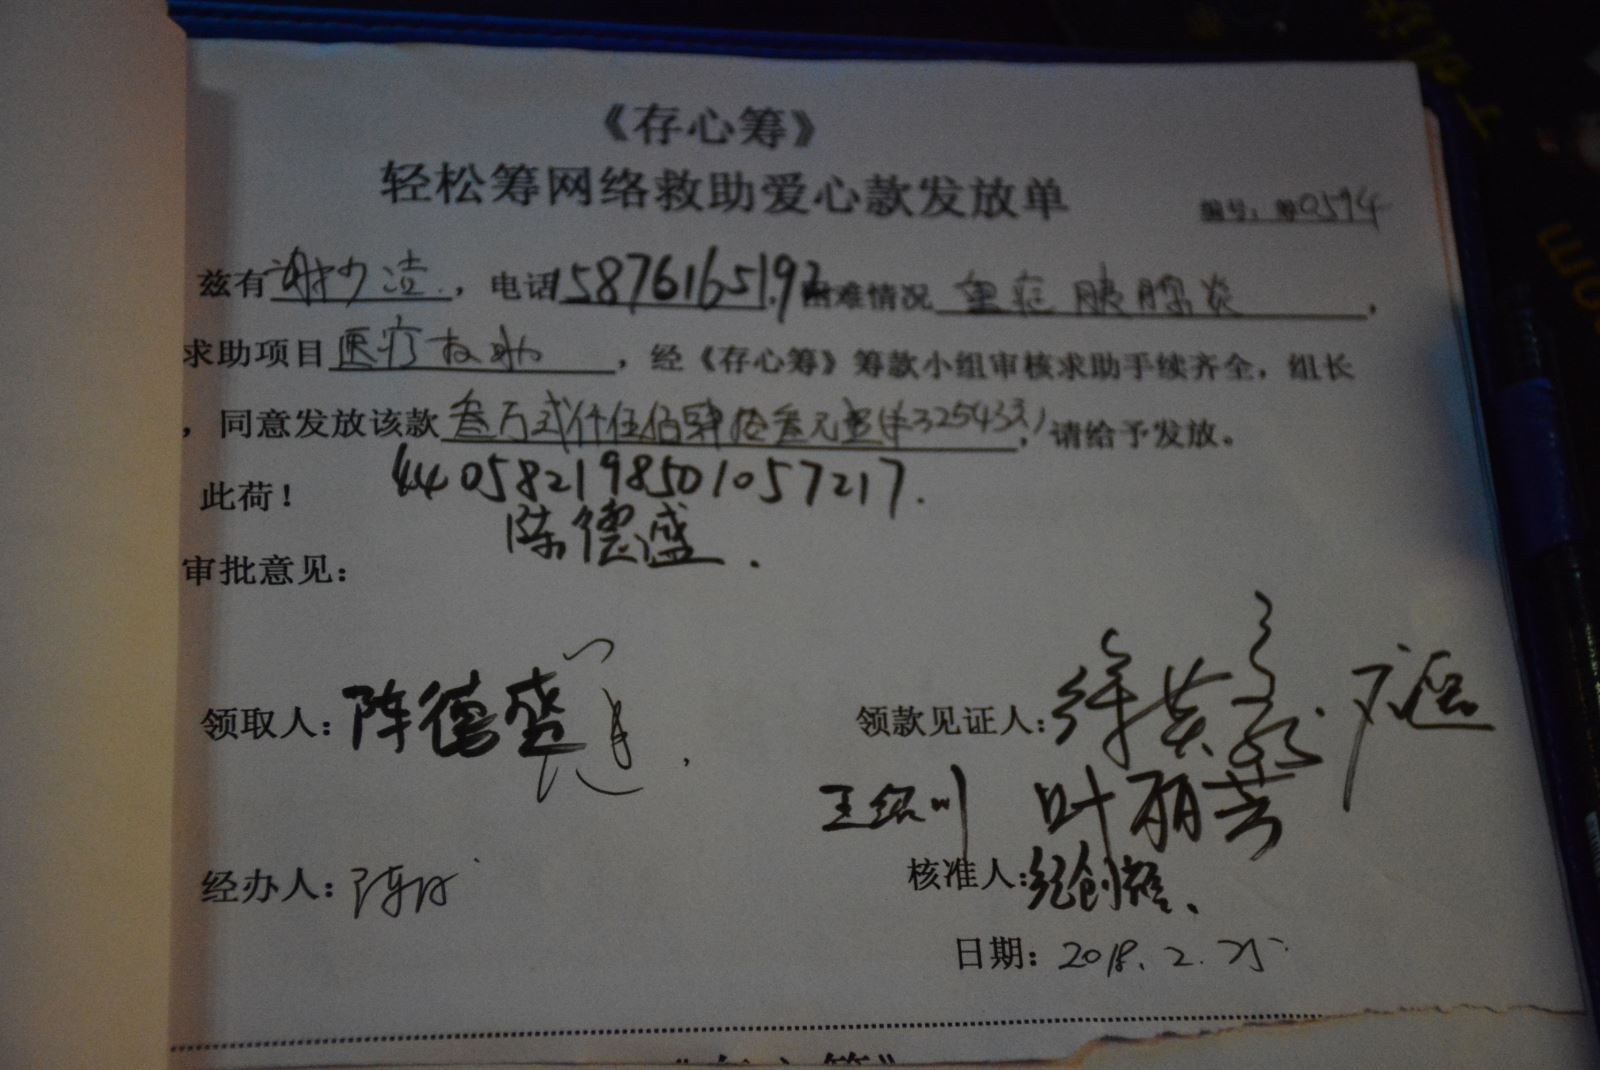 《存心筹》
轻松筹网络救助爱心款发放单
编号：筹0594
兹有谢少洁，电话15876165192困难情况重症胰腺炎，
求助项目医疗救助，经《存心筹》筹款小组审核求助手续齐全，组长
，同意发放该款叁万贰仟伍佰肆拾叁元整(¥32543元)，请给予发放。
此荷！ 440582198501057217.
陈德盛.
审批意见：
领取人：陈德盛 领款见证人：
叶丽芸
经办人： 核准人：
日期：2018.2.25